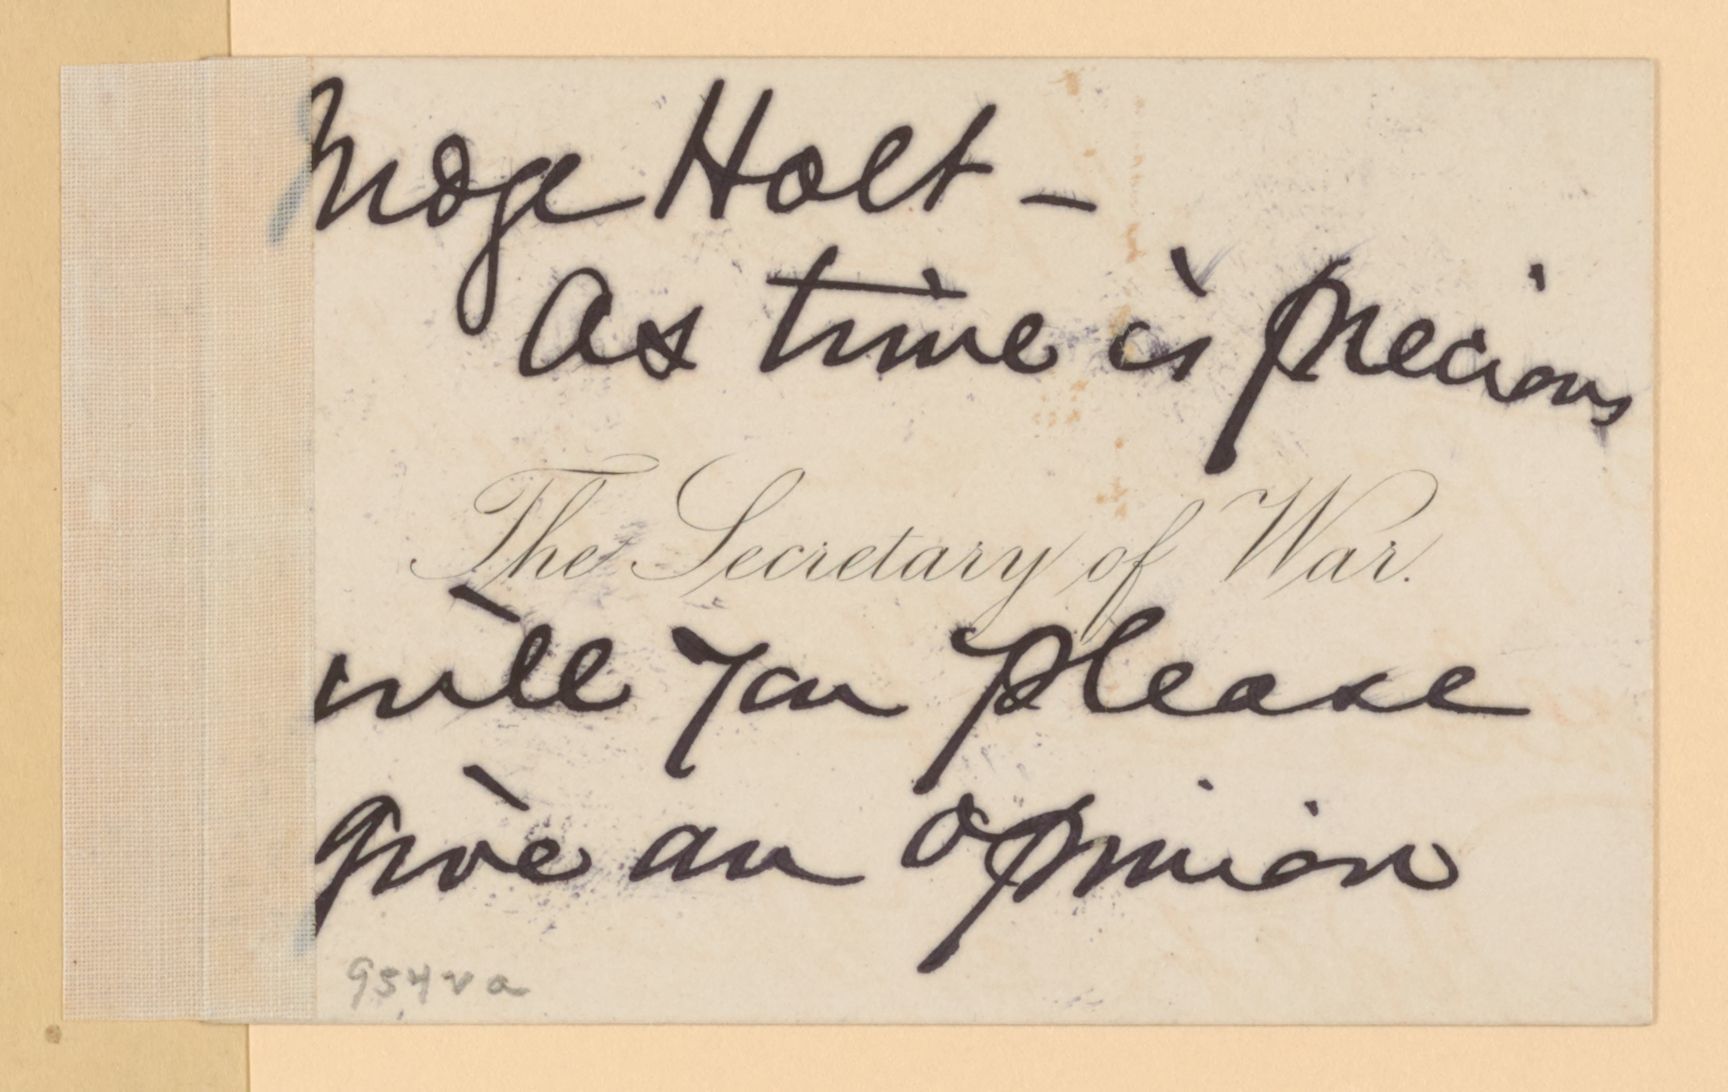 Judge Holt –
As time is precious
The Secretary of War.
will you please
give an opinion
954va